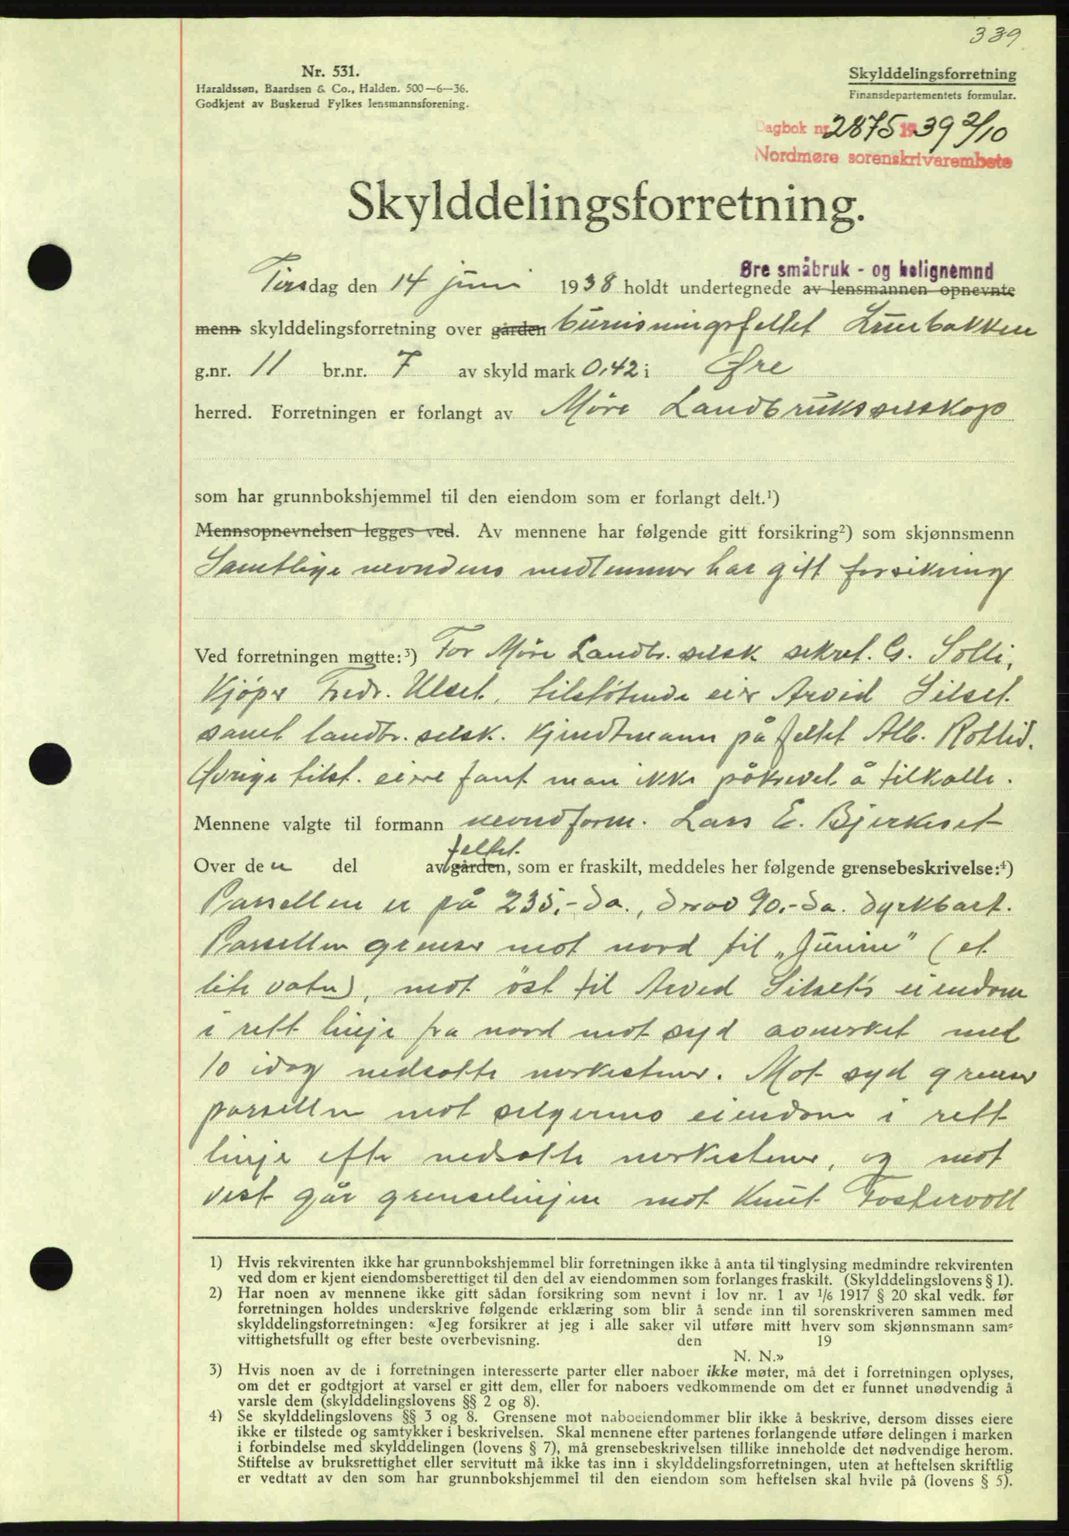 339
Nr. 531.
Haraldssøn, Baardsen & Co., Halden. 500—6—36.
Godkjent av Buskerud Fylkes lensmannsforening.
Skylddelingsforretning
Finansdepartementets formular.
Dagbok nr. 2875 1939 2/10
Nordmøre sorenskrivarembete
Skylddelingsforretning.
Øre småbruk - og bolignemnd
Tirsdag den 14 juni 1938 holdt undertegnede av lensmannen opnevnte
menn skylddelingsforretning over gården bureisningsfeltet Lurbakken
g.nr. 11 br.nr. 7 av skyld mark 0,42 i Øre
herred. Forretningen er forlangt av Møre Landbruksselskap
som har grunnbokshjemmel til den eiendom som er forlangt delt.¹)
Mennsopnevnelsen legges ved. Av mennene har følgende gitt forsikring²) som skjønnsmenn
Samtlige nevndens medlemmer har gitt forsikring
Ved forretningen møtte:³) For Møre Landbr. selsk sekret. G. Solli,
Kjøper Fredr. Ulset, tilstøtende eier Arvid Silset
samt landbr. selsk. kjendtmann på feltet Alb. Rottid.
Øvrige tilst. eiere fant man ikke påkrevet å tilkalle.
Mennene valgte til formann nevndform. Lars E. Bjerkeset
feltet
Over den del av gården, som er fraskilt, meddeles her følgende grensebeskrivelse:⁴)
Parsellen er på 235,- da., derav 90,- da. dyrkbart.
Parsellen grenser mot nord til „Junin" (et
lite vatn), mot øst til Arvid Silset's eiendom
i rett linje fra nord mot syd avmerket med
10 idag nedsatte merkestener. Mot syd grenser
parsellen mot selgerens eiendom i rett
linje efter nedsatte merkestener, og mot
vest går grenselinjen mot Knut Fostervoll
1) Hvis rekvirenten ikke har grunnbokshjemmel blir forretningen ikke å anta til tinglysing medmindre rekvirenten
ved dom er kjent eiendomsberettiget til den del av eiendommen som forlanges fraskilt. (Skylddelingslovens § 1).
2) Har noen av mennene ikke gitt sådan forsikring som nevnt i lov nr. 1 av 1/6 1917 § 20 skal vedk. før
forretningen holdes underskrive følgende erklæring som blir å sende inn til sorenskriveren sammen med
skylddelingsforretningen: «Jeg forsikrer at jeg i alle saker vil utføre mitt hverv som skjønnsmann sam-
vittighetsfullt og efter beste overbevisning. den 19
N. N.»
3) Hvis noen av de i forretningen interesserte parter eller naboer ikke møter, må det i forretningen oplyses,
om det er godtgjort at varsel er gitt dem, eller for naboers vedkommende om det er funnet unødvendig å
varsle dem (skylddelingslovens §§ 2 og 8).
4) Se skylddelingslovens §§ 3 og 8. Grensene mot naboeiendommer blir ikke å beskrive, dersom disses eiere
ikke er tilstede og samtykker i beskrivelsen. Skal mennene efter partenes forlangende utføre delingen i marken
i forbindelse med skylddelingen (lovens § 7), må grensebeskrivelsen tillike inneholde det nødvendige herom.
Stiftelse av bruksrettighet eller servitutt må ikke tas inn i skylddelingsforretningen, uten at heftelsen skriftlig
er vedtatt av den som har grunnbokshjemmel til den eiendom som heftelsen skal hvile på (lovens § 5).